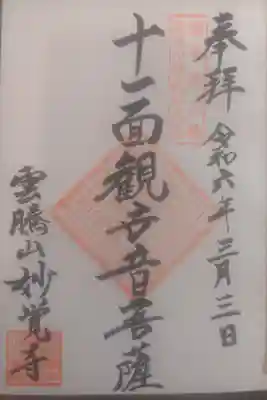 奉拝 令和六年三月三日
十一面観世音菩薩
雲騰山妙覚寺